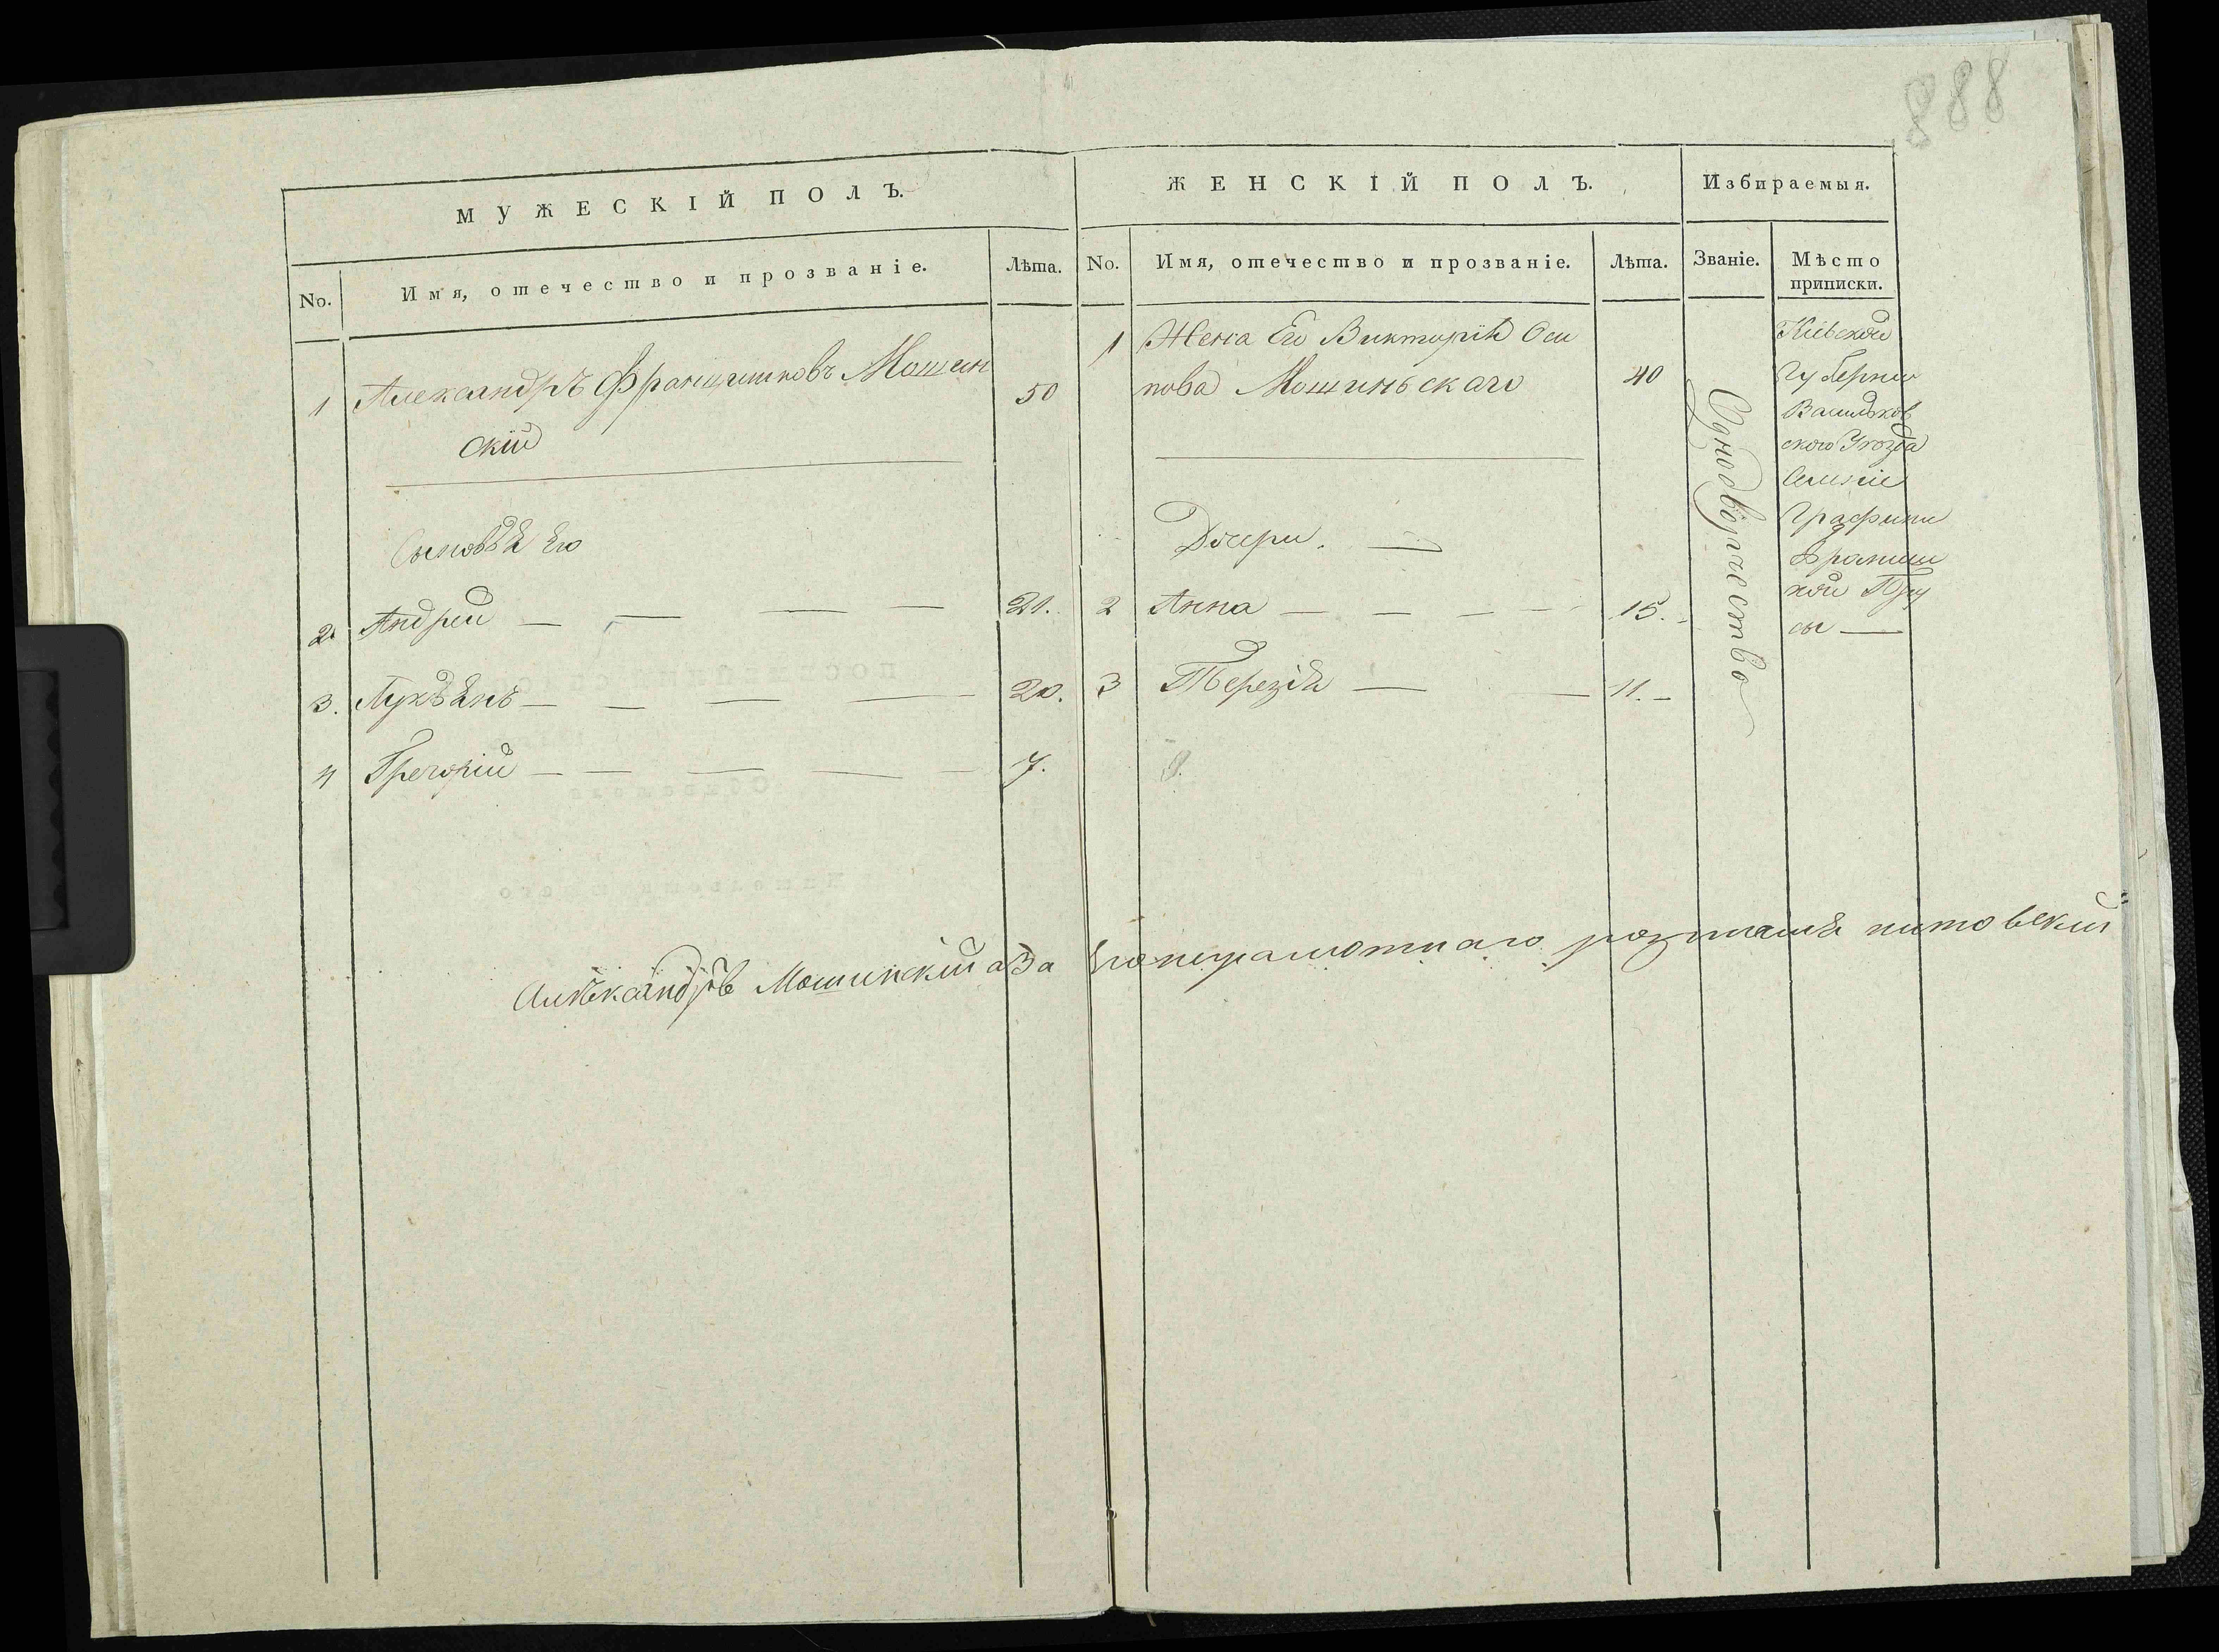 888
МУЖЕСКІЙ ПОЛЪ.
No. Имя, отечество и прозваніе. Лѣта.
1 Александръ Францишковъ Мошин 50
скій
Сыновья Его
2 Андрей — — — — 21.
3. Лукьянъ — — — — 20.
4 Грегорій — — — — — 7.
ЖЕНСКІЙ ПОЛЪ.
No. Имя, отечество и прозваніе. Лѣта.
1 Жена Его Викторія Оси
пова Мошиньскаго 40
Дочери. —
2 Анна — — — — 15.
3 Терезія — — 11. —
Избираемыя.
Званіе.
Однодворчество
Мѣсто
приписки.
Кіевской
Губерніи
Васильков
ского Уезда
Графини
Браниц
кой
сы —
Александръ Мошинскій а За Его неграмотнаго